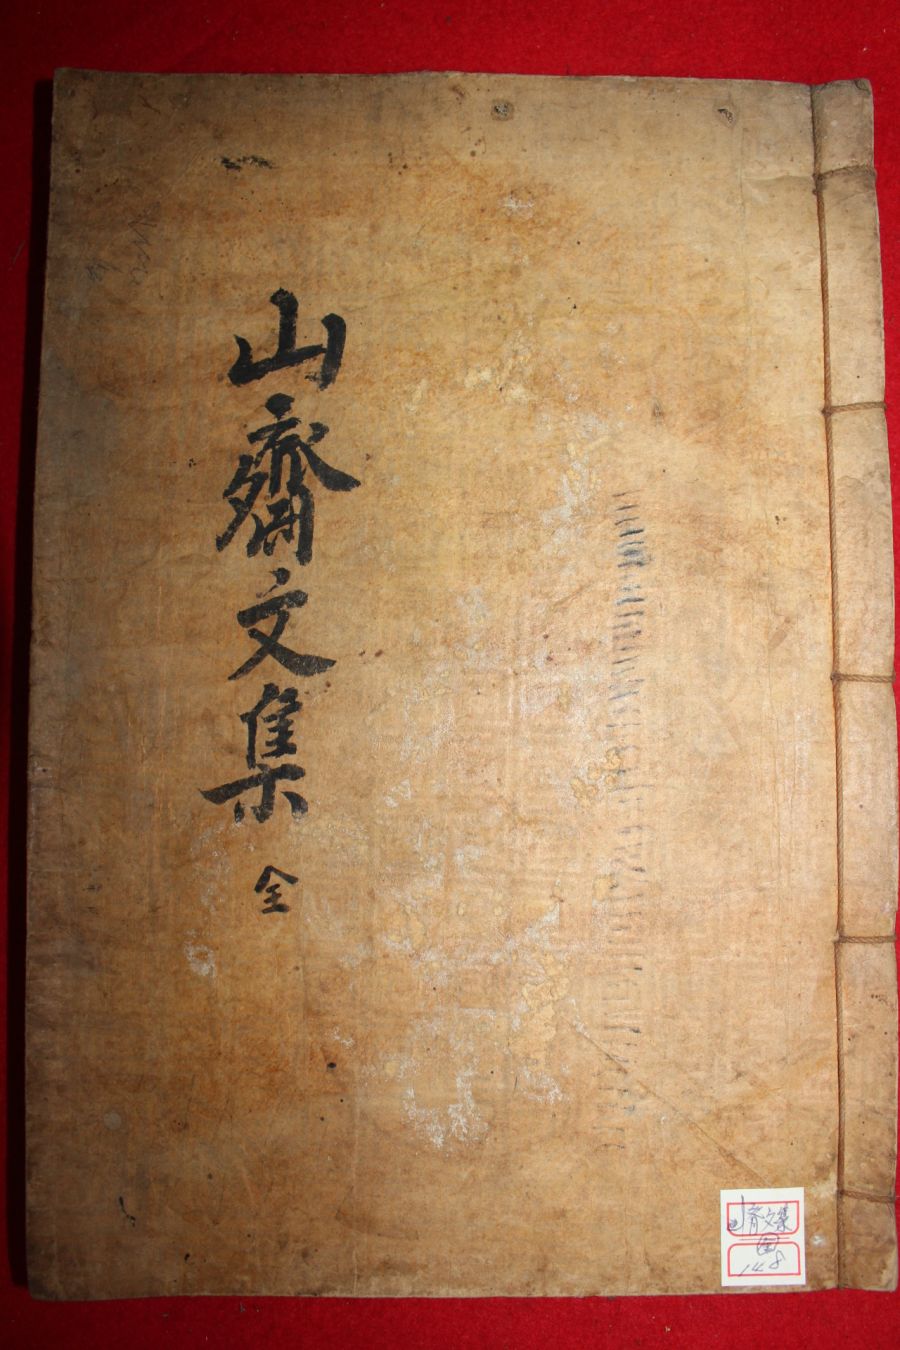 山齋文集
全
山齊文集
全
148